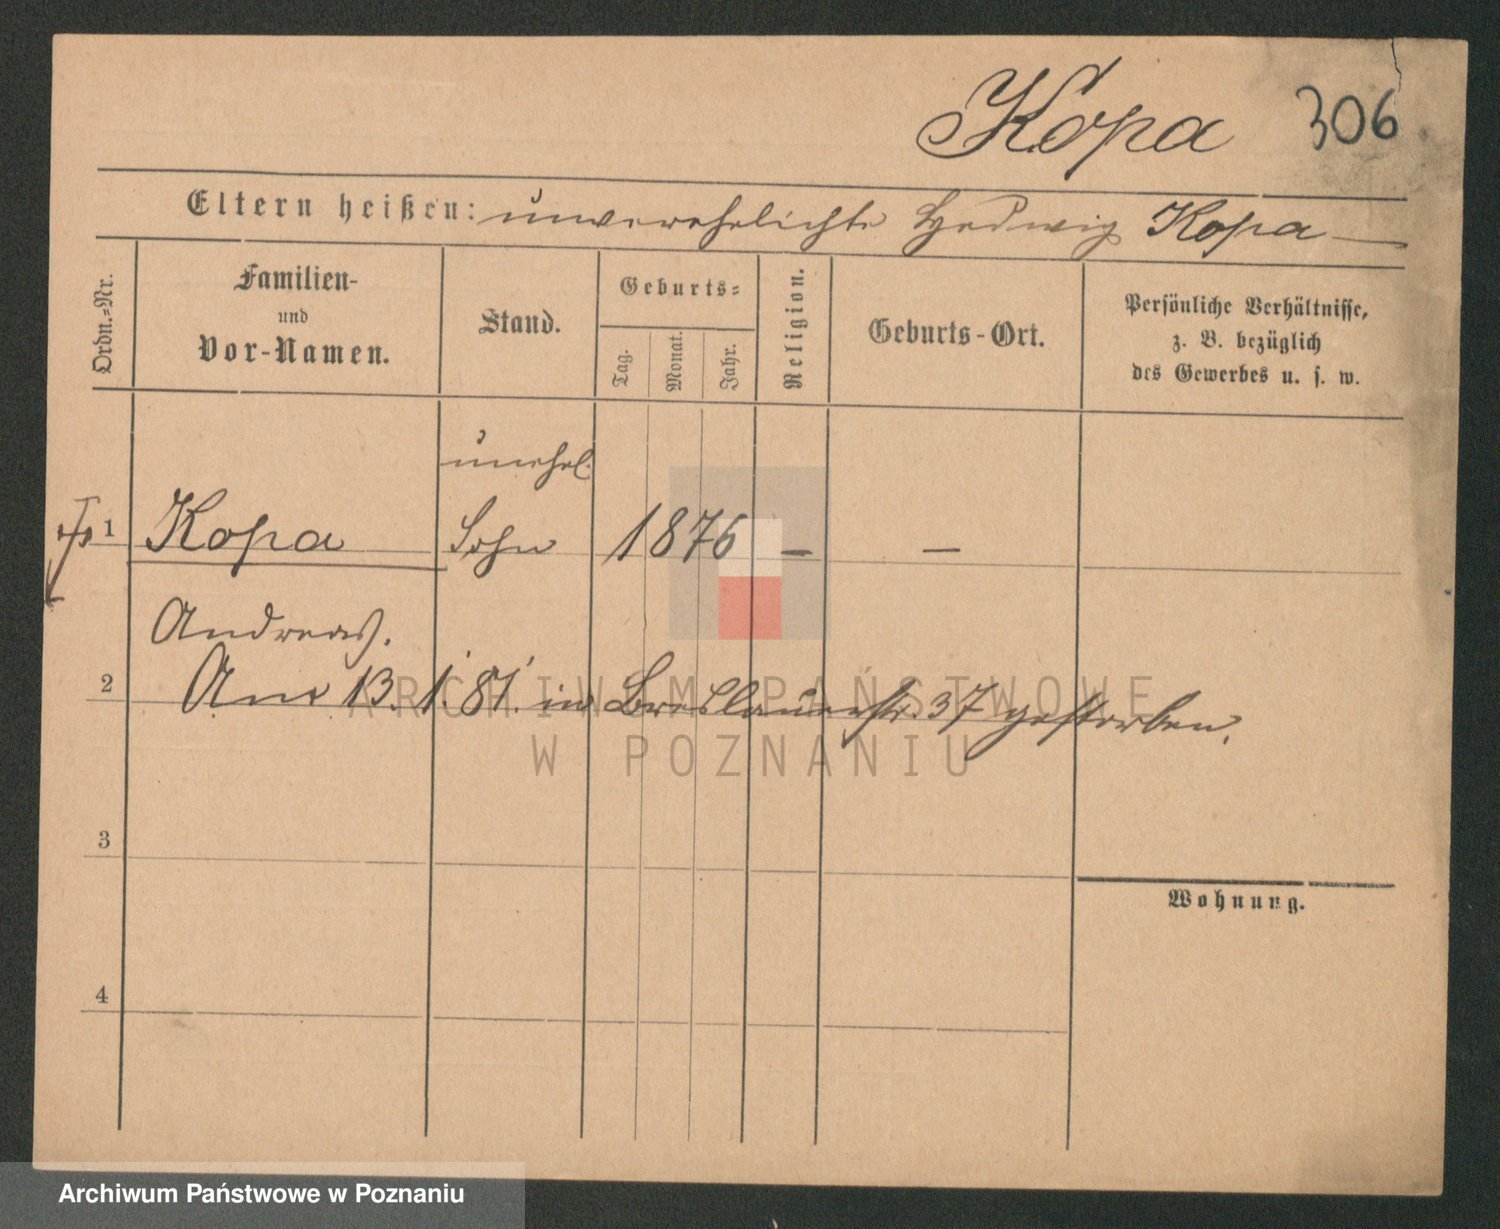 Kopa 306
Eltern heißen: unverehelichte Hedwig Kopa
Ordn.-Nr.
Familien-
und
Vor-Namen.
Stand.
Geburts-
Tag.
Monat.
Jahr.
Religion.
Geburts-Ort.
Persönliche Verhältnisse,
z. B. bezüglich
des Gewerbes u. s. w.
unehel.
1 Kopa Sohn 1876 — —
Andreas.
2 Am 13. 1. 81. in Breslauerstr. 37 gestorben.
ARCHIWUM PAŃSTWOWE
W POZNANIU
3
Wohnung.
4
Archiwum Państwowe w Poznaniu